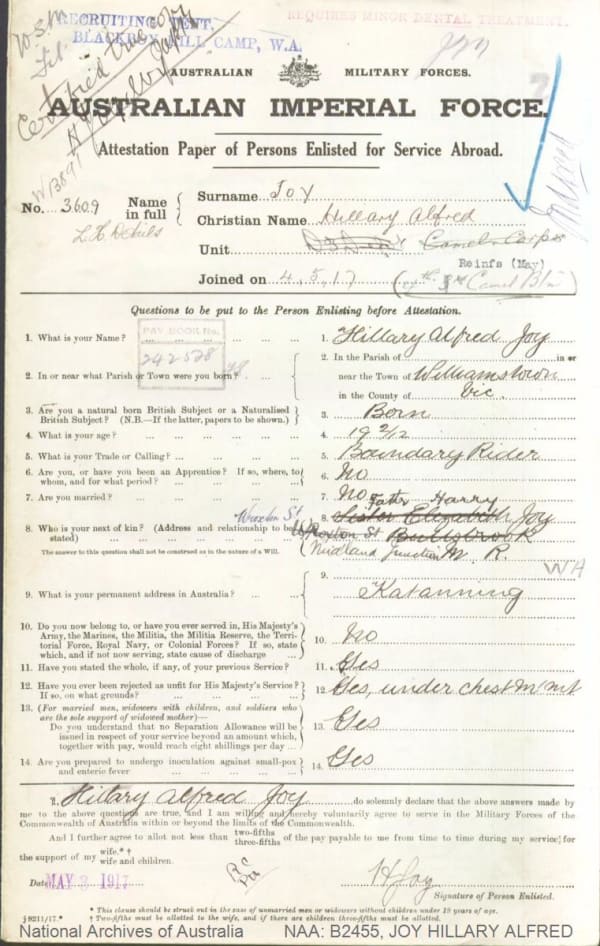 RECRUITING DEPT,
BLACKBOY HILL CAMP, W.A.
REQUIRES MINOR DENTAL TREATMENT.
Certified true copy
Joy
AUSTRALIAN MILITARY FORCES.
AUSTRALIAN IMPERIAL FORCE.
Attestation Paper of Persons Enlisted for Service Abroad.
No. 3609 Name in full { Surname Joy
Christian Name Hillary Alfred
Unit Camel Corps
Reinfs (May)
Joined on 4.5.17 Camel Btn
Questions to be put to the Person Enlisting before Attestation.
PAY BOOK No.
242528
1. What is your Name? ... 1. Hillary Alfred Joy
2. In or near what Parish or Town were you born? ... 2. In the Parish of in or
near the Town of Williamstown
in the County of Vic.
3. Are you a natural born British Subject or a Naturalised British Subject? (N.B.—If the latter, papers to be shown.) 3. Born
4. What is your age? ... 4. 19 2/12
5. What is your Trade or Calling? ... 5. Boundary Rider
6. Are you, or have you been an Apprentice? If so, where, to whom, and for what period? ... 6. No
7. Are you married? ... 7. No
8. Who is your next of kin? (Address and relationship to be stated) ... 8. Father Harry
Sister Elizabeth Joy
Wroxton St Bullsbrook
Midland Junction M. R.
WA
The answer to this question shall not be construed as in the nature of a Will.
9. What is your permanent address in Australia? ... 9. Katanning
10. Do you now belong to, or have you ever served in, His Majesty's Army, the Marines, the Militia, the Militia Reserve, the Territorial Force, Royal Navy, or Colonial Forces? If so, state which, and if not now serving, state cause of discharge ... 10. No
11. Have you stated the whole, if any, of your previous Service? 11. Yes
12. Have you ever been rejected as unfit for His Majesty's Service? If so, on what grounds? 12. Yes, under chest m'mt
13. (For married men, widowers with children, and soldiers who are the sole support of widowed mother)—
Do you understand that no Separation Allowance will be issued in respect of your service beyond an amount which, together with pay, would reach eight shillings per day ... 13. Yes
14. Are you prepared to undergo inoculation against small-pox and enteric fever ... 14. Yes
I, Hillary Alfred Joy do solemnly declare that the above answers made by
me to the above questions are true, and I am willing and hereby voluntarily agree to serve in the Military Forces of the
Commonwealth of Australia within or beyond the limits of the Commonwealth.
And I further agree to allot not less than two-fifths three-fifths of the pay payable to me from time to time during my service for
the support of my wife.*† wife and children.
Date MAY 3 1917 H Joy
Signature of Person Enlisted.
* This clause should be struck out in the case of unmarried men or widowers without children under 18 years of age.
§8211/17.* † Two-fifths must be allotted to the wife, and if there are children three-fifths must be allotted.
National Archives of Australia NAA: B2455, JOY HILLARY ALFRED